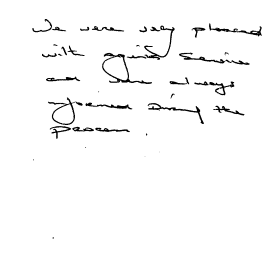 We were very pleased
with agents service
and were always
informed during the
process.